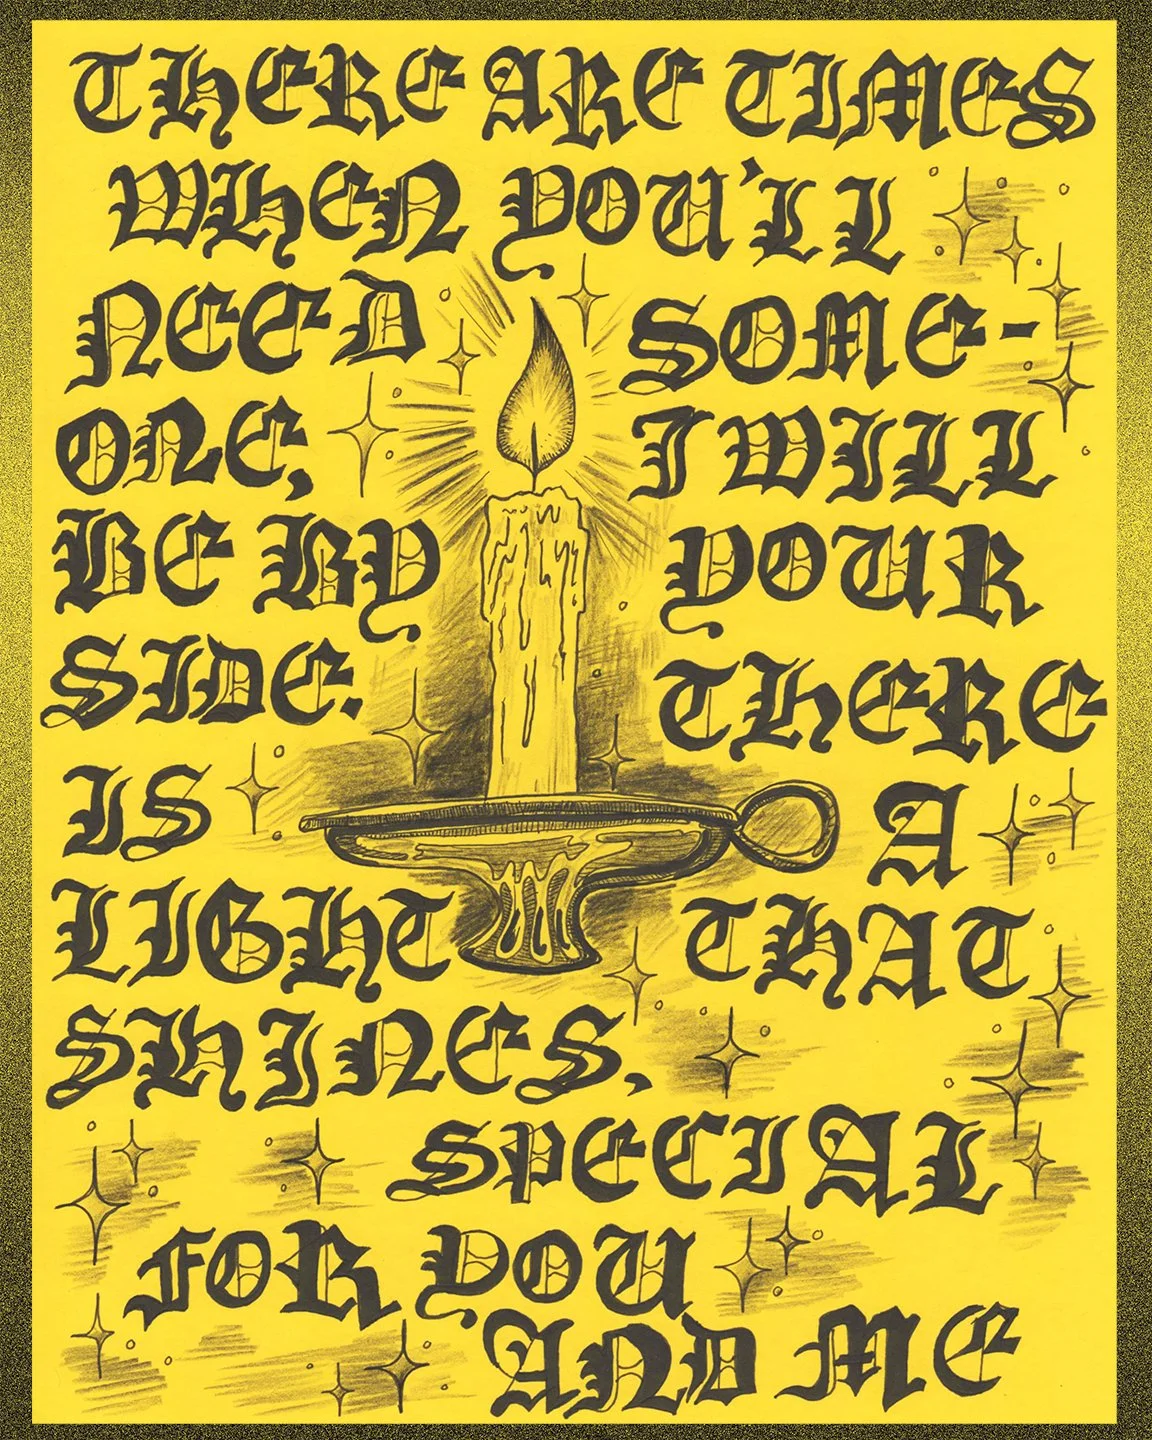 THERE ARE TIMES
WHEN YOU'LL
NEED SOME-
ONE, I WILL
BE BY YOUR
SIDE. THERE
IS A
LIGHT THAT
SHINES,
SPECIAL
FOR YOU
AND ME